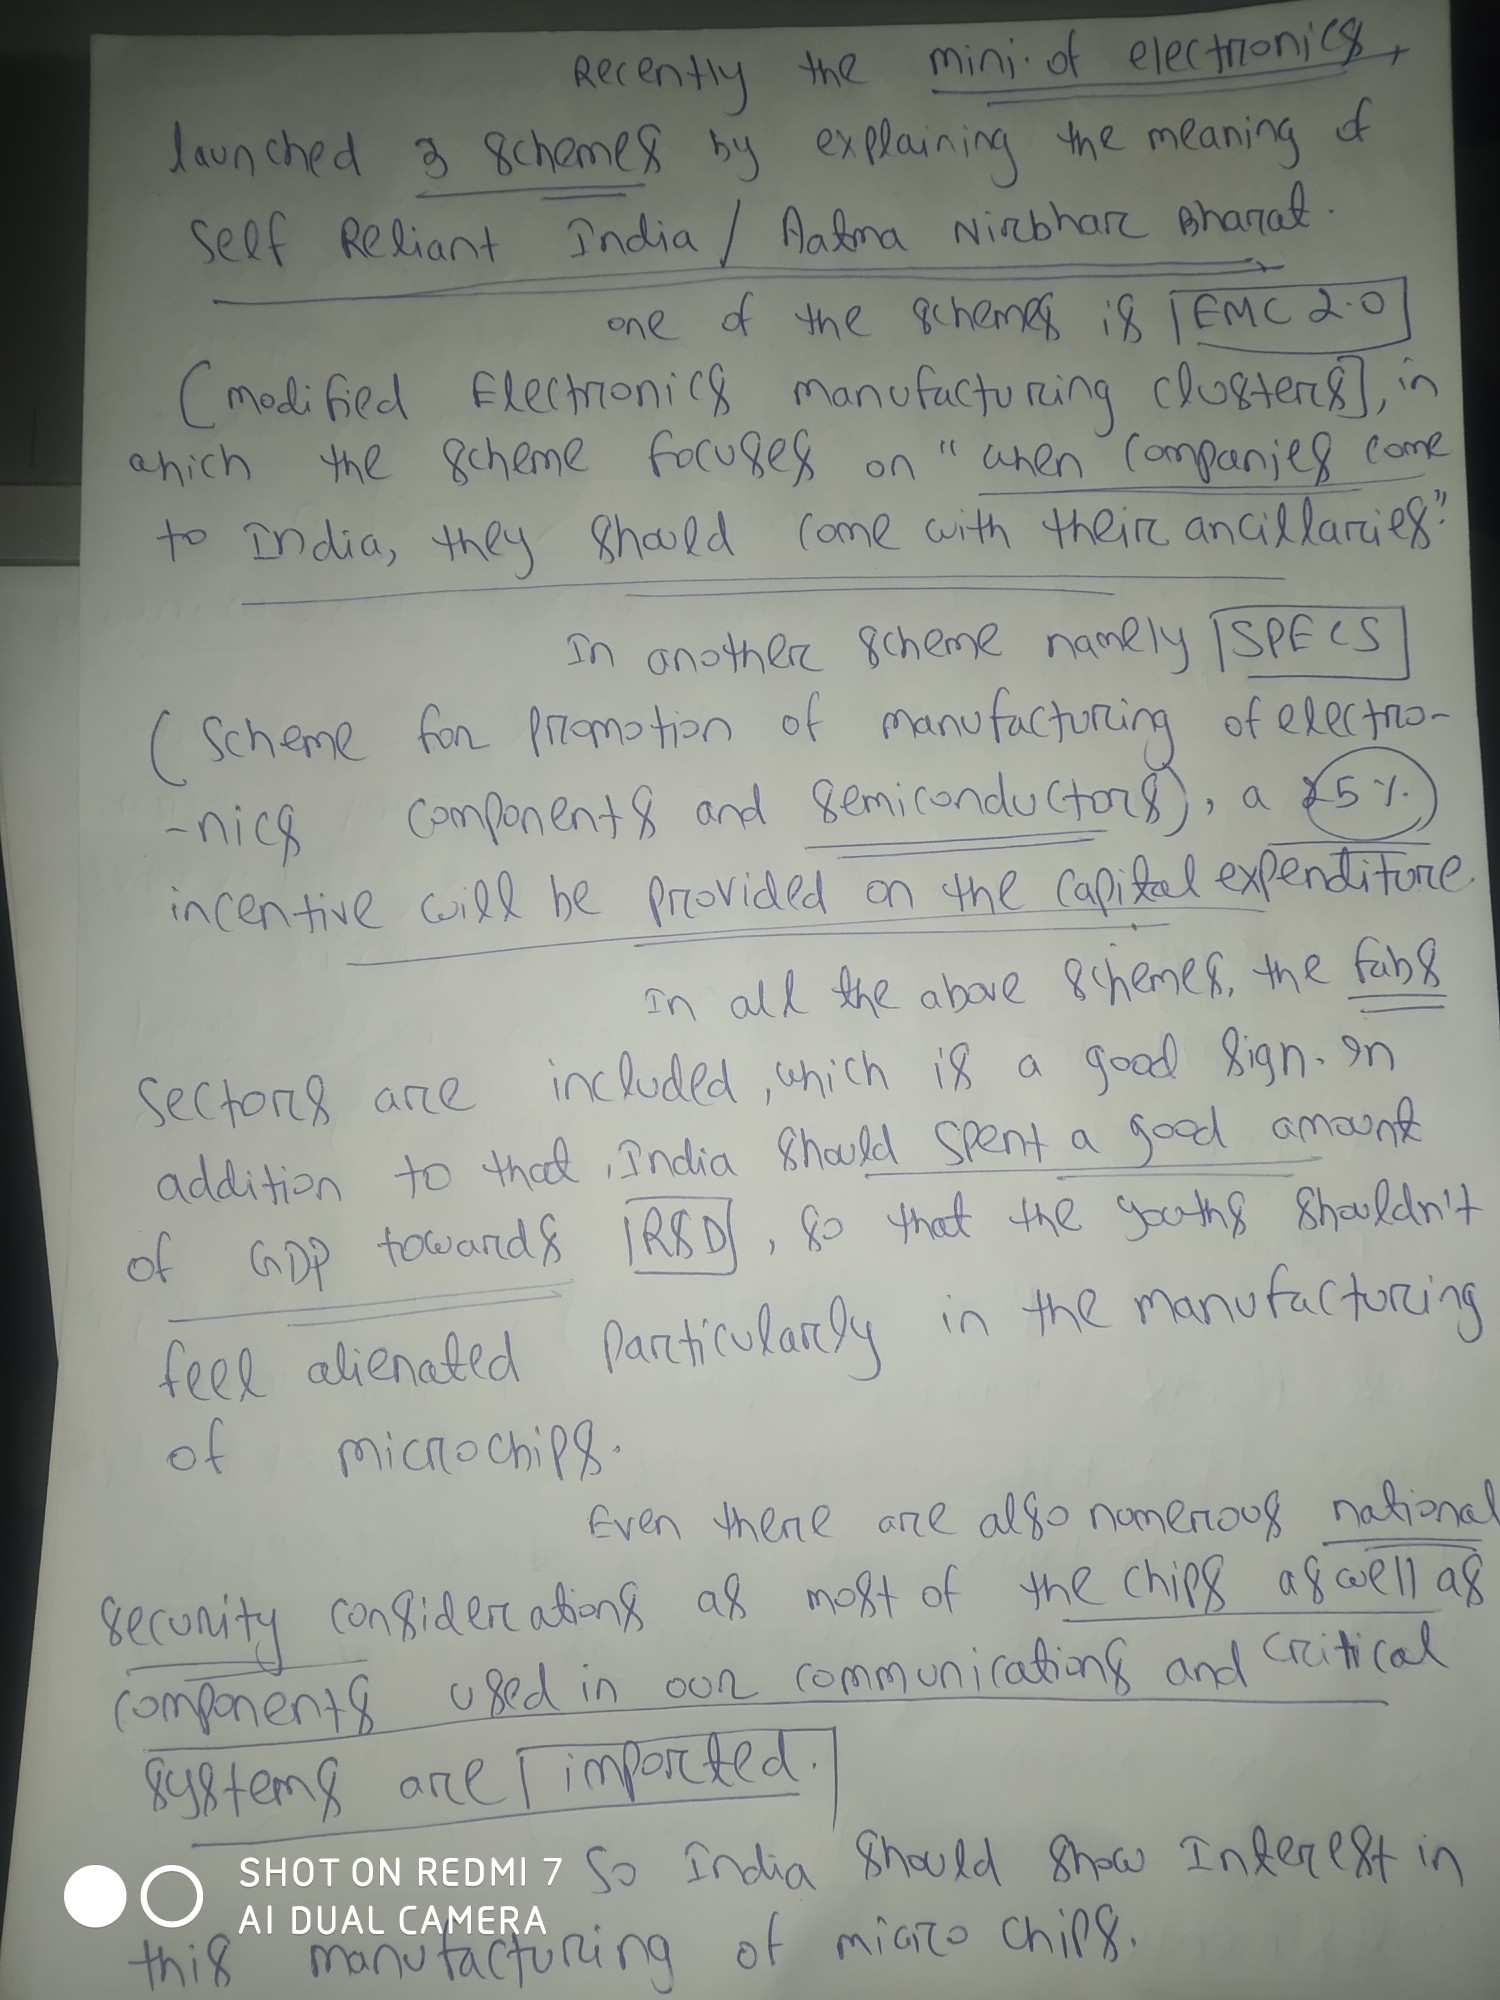 Recently the mini. of electronics
launched 3 schemes by explaining the meaning of
Self Reliant India / Aatma Nirbhar Bharat.
one of the schemes is EMC 2.0
(modified Electronics manufacturing clusters), in
which the scheme focuses on "when companies come
to India, they should come with their ancillaries".
In another scheme namely SPECS
(Scheme for promotion of manufacturing of electro-
-nics components and semiconductors), a 25%
incentive will be provided on the capital expenditure
In all the above schemes, the fabs
sectors are included, which is a good sign. In
addition to that, India should spent a good amount
of GDP towards R&D, so that the youths shouldn't
feel alienated particularly in the manufacturing
of microchips.
Even there are also numerous national
security considerations as most of the chips as well as
components used in our communications and critical
systems are imported.
So India should show Interest in
this manufacturing of micro chips.
SHOT ON REDMI 7
AI DUAL CAMERA